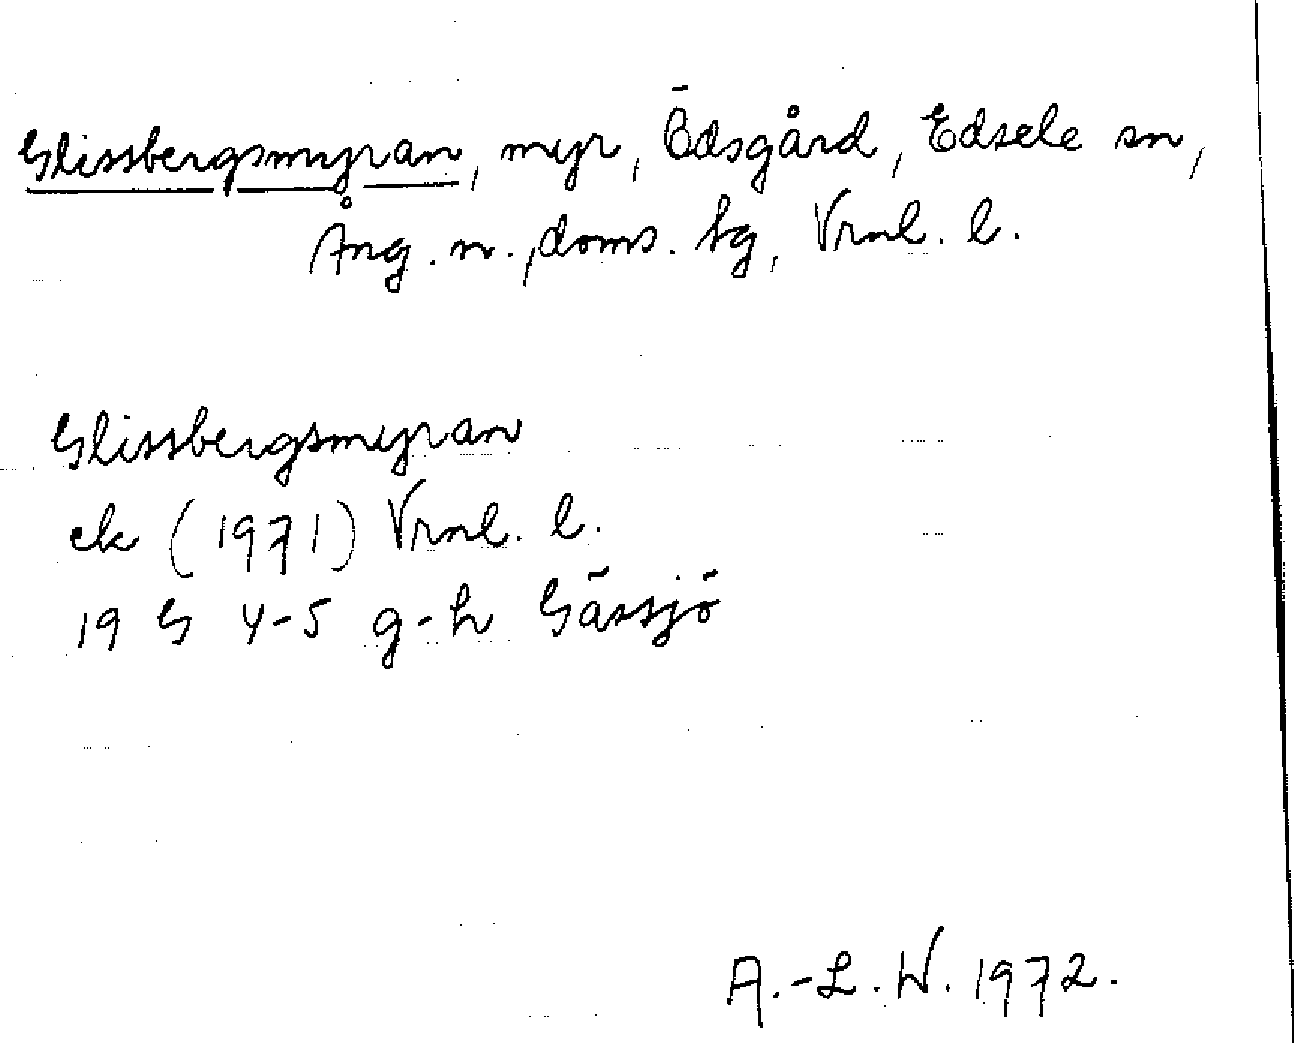 Glissbergsmyran, myr, Ödsgård, Edsele sn,
Ång. n., doms. tg, Vrnl. l.
Glissbergsmyran
ek (1971) Vrnl. l.
19 G 4-5 g-h Gässjö
A.-L. W. 1972.